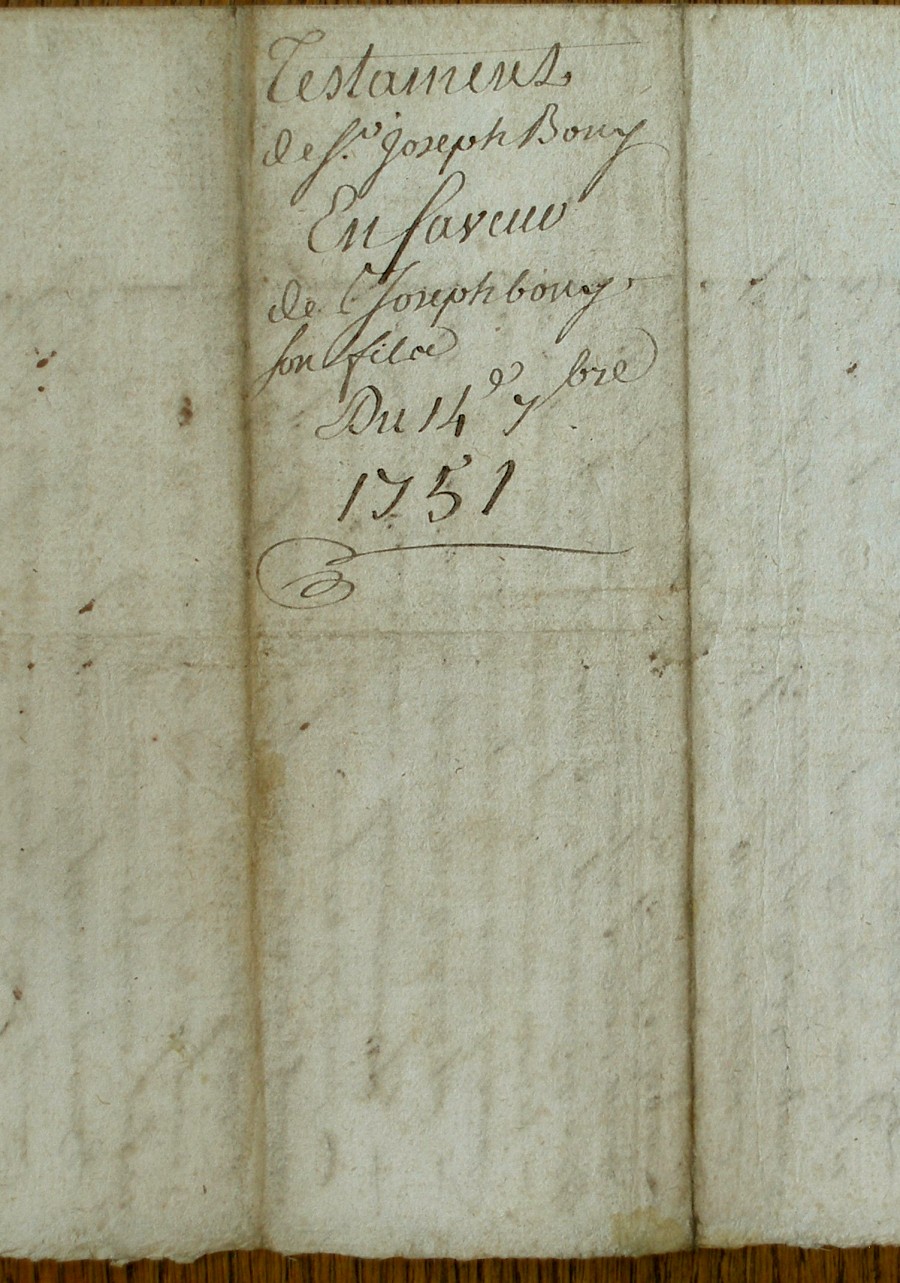 Testament
de Sr. Joseph Bouy
En faveur
de Joseph bouy
son fils
Du 14e 7bre
1751